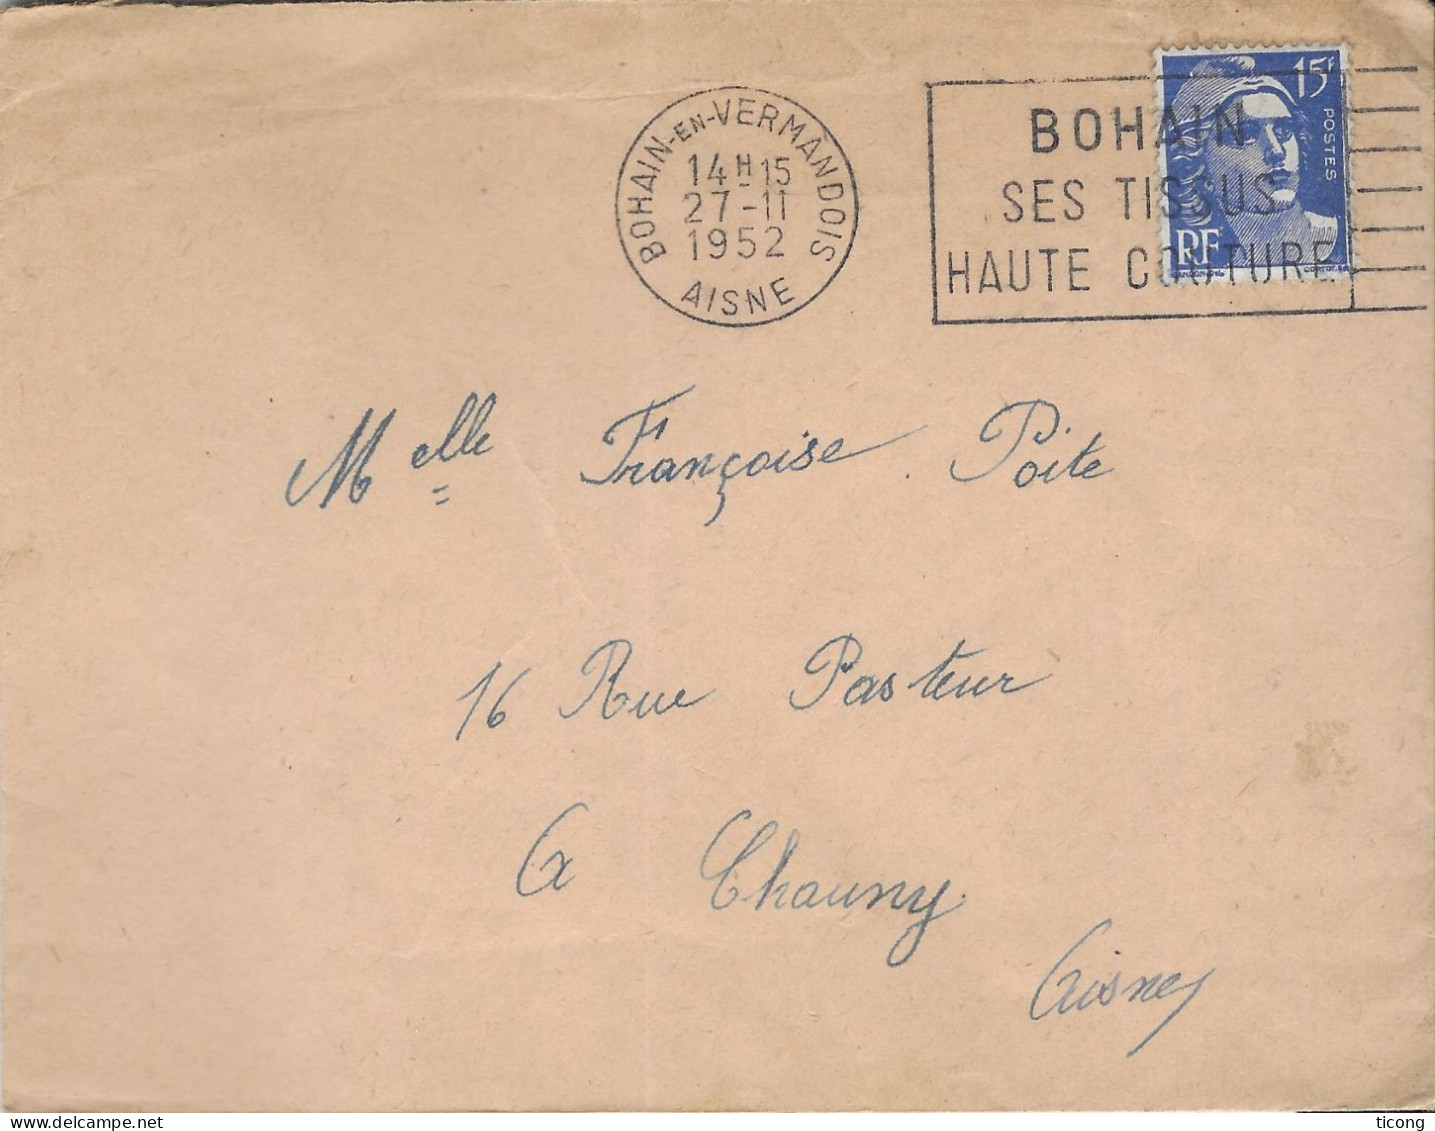 BOHAIN-EN-VERMANDOIS
14H15
27-11
1952
AISNE
BOHAIN
SES TISSUS
HAUTE COUTURE
15F
POSTES
RF
Melle Françoise Poite
16 Rue Pasteur
A Chauny
Aisne
delcampe.net
ticong